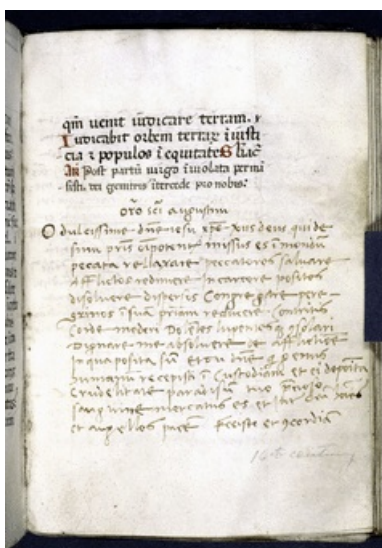 qm̄ uenit iudicare terram. ⁊
Iudicabit orbem terrar̄ ī iusti
cia ⁊ populos ī equitate S hāc
Añ Post partū uirgo īuiolata permā
sisti. dei genitrix ītercede pro nobis.
orō scī augustini
O dulcissime dn̄e iesu xp̄e xus deus qui de
sinu pr̄is oīpotent missus es ī mondū
pecata rellaxare peccatores saluare
Afflictos redimere Incarcere positos
disoluere dispersis Congregare pere
grinos ī suā priam reducere Contritis
Corde mederi Dolētes lugentes q̄ ꝯsolari
Dignare me absoluere de afflictiōe
In qua posita sū Et tu dn̄e q̄ genus
humanū recepisti ī Custodiam et ei
paradisum tuo p̄cioso
sanguine mercatus es et īter hoīes
et angellos pacē fecisti et ꝯcordiā
16th century